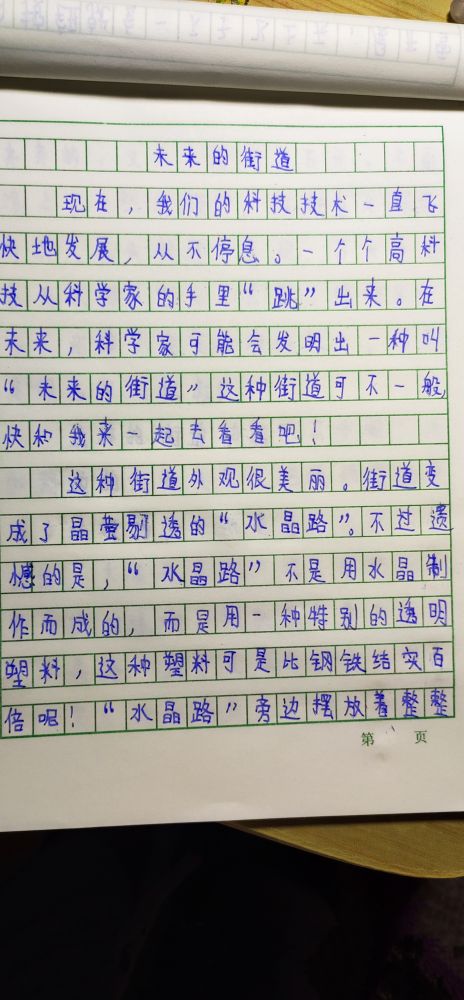 未来的街道
现在，我们的科技技术一直飞
快地发展，从不停息。一个个高科
技从科学家的手里“跳”出来。在
未来，科学家可能会发明出一种叫
“未来的街道”这种街道可不一般，
快和我来一起去看看吧！
这种街道外观很美丽。街道变
成了晶莹剔透的“水晶路”。不过遗
憾的是，“水晶路”不是用水晶制
作而成的，而是用一种特别的透明
塑料，这种塑料可是比钢铁结实百
倍呢！“水晶路”旁边摆放着整整
第 页